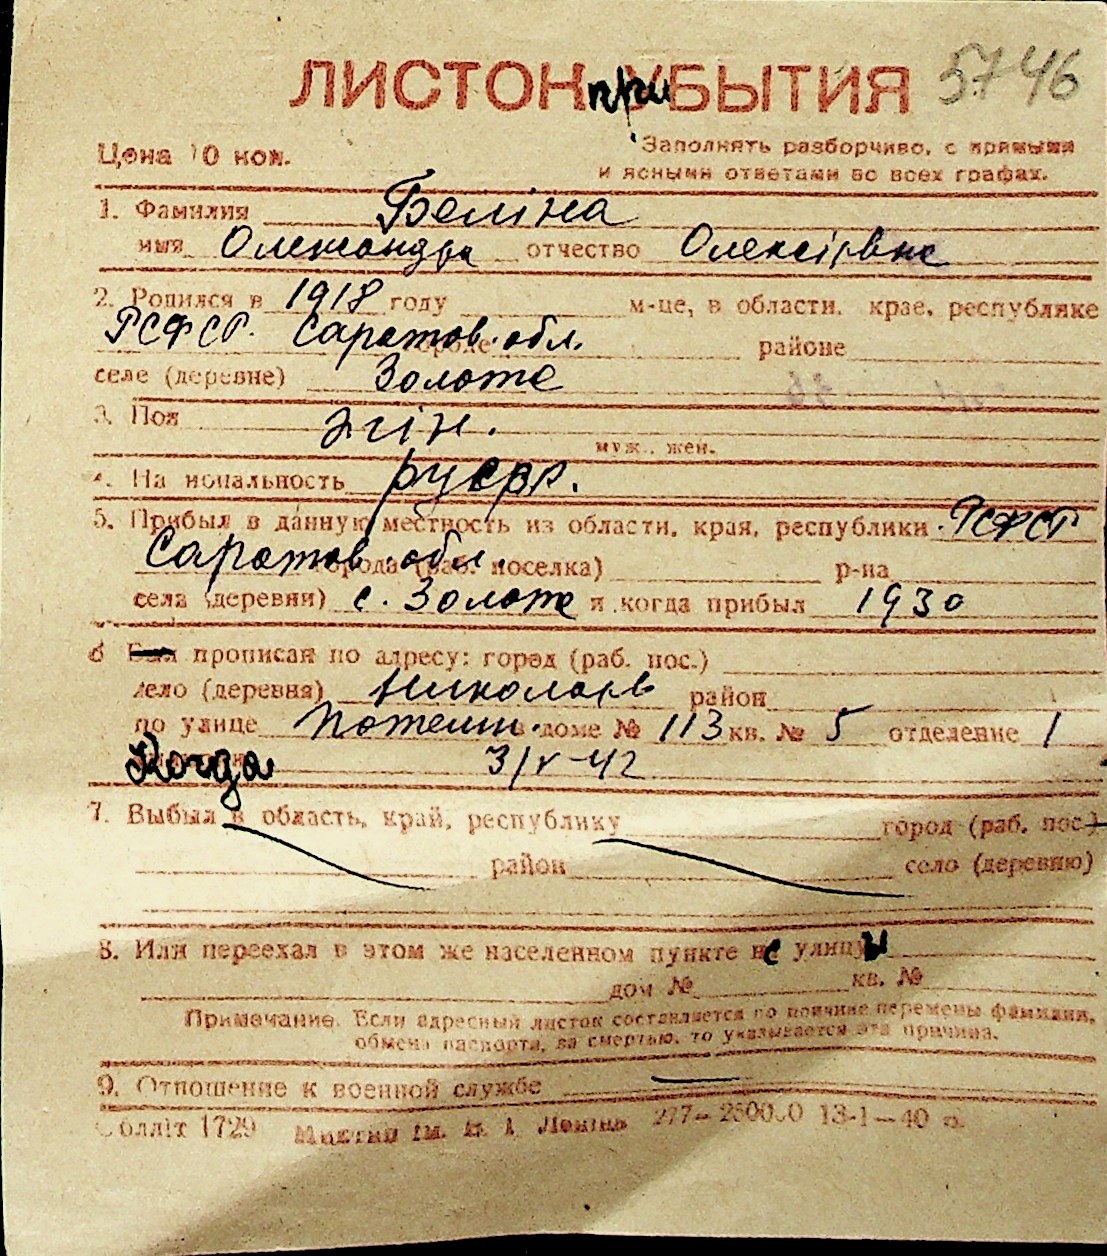 ЛИСТОК прибытия 5746
Цена 10 коп. Заполнять разборчиво, с прямыми
и ясными ответами во всех графах.
1. Фамилия Беліна
имя Олександра отчество Олексіївна
2. Родился в 1918 году м-це, в области, крае, республике
РСФСР. Саратов. обл. городе районе
селе (деревне) Золоте
3. Пол жін. муж., жен.
4. Национальность
5. Прибыл в данную местность из области, края, республики РСФСР
Саратов. обл. города (раб. поселка) р-на
села (деревни) с. Золоте и когда прибыл 1930
6 прописан по адресу: город (раб. пос.)
село (деревня) Николаїв район
по улице в доме № 113 кв. № 5 отделение 1
Когда 3/V-42
7. Выбыл в область, край, республику город (раб. пос.)
район село (деревню)
8. Или переехал в этом же населенном пункте с улицы
дом № кв. №
Примечание. Если адресный листок составляется по причине перемены фамилии,
обмена паспорта, за смертью, то указывается эта причина.
9. Отношение к военной службе —
Облліт 1729 ім. В. І. Леніна 277—250000 13-1—40 р.